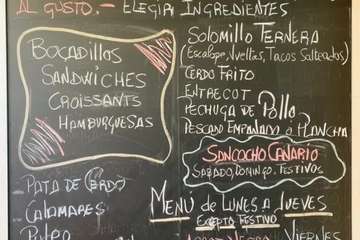 AL GUSTO.- ELEGIR INGREDIENTES
BOCADILLOS
SANDWICHES
CROISSANTS
HAMBURGUESAS
SOLOMILLO TERNERA
(ESCALOPE, VUELTAS, TACOS SALTEADOS)
CERDO FRITO
ENTRECOT
PECHUGA DE POLLO
PESCADO EMPANADO O PLANCHA
SANCOCHO CANARIO
SABADO, DOMINGO, FESTIVOS
PATA DE CERDO
CALAMARES
PULPO
MENU DE LUNES A JUEVES
EXCEPTO FESTIVO
VIERNES